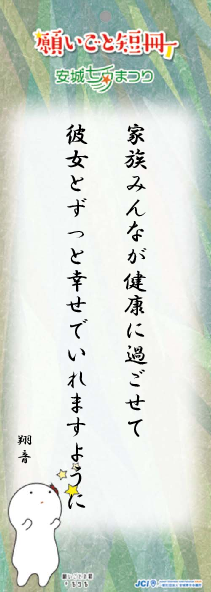 願いごと短冊
安城七夕まつり
家族みんなが健康に過ごせて
彼女とずっと幸せでいれますように
翔音
JCI